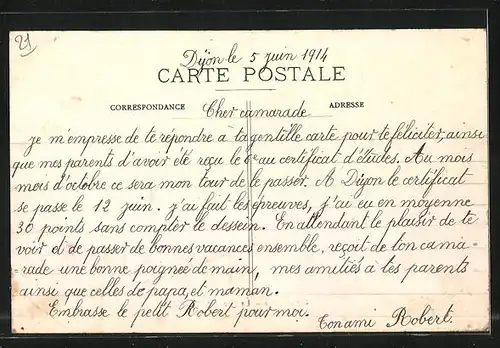 21
Dijon le 5 juin 1914
CARTE POSTALE
CORRESPONDANCE Cher camarade ADRESSE
je m'empresse de te répondre à ta gentille carte pour te féliciter, ainsi
que mes parents d'avoir été reçu le 6e au certificat d'études. Au mois
mois d'octobre ce sera mon tour de le passer. A Dijon le certificat
se passe le 12 juin. j'ai fait les épreuves, j'ai eu en moyenne
30 points sans compter le dessein. En attendant le plaisir de te
voir et de passer de bonnes vacances ensemble, reçoit de ton cama-
rade une bonne poignée de main, mes amitiés à tes parents
ainsi que celles de papa, et maman.
Embrasse le petit Robert pour moi.
Ton ami Robert.